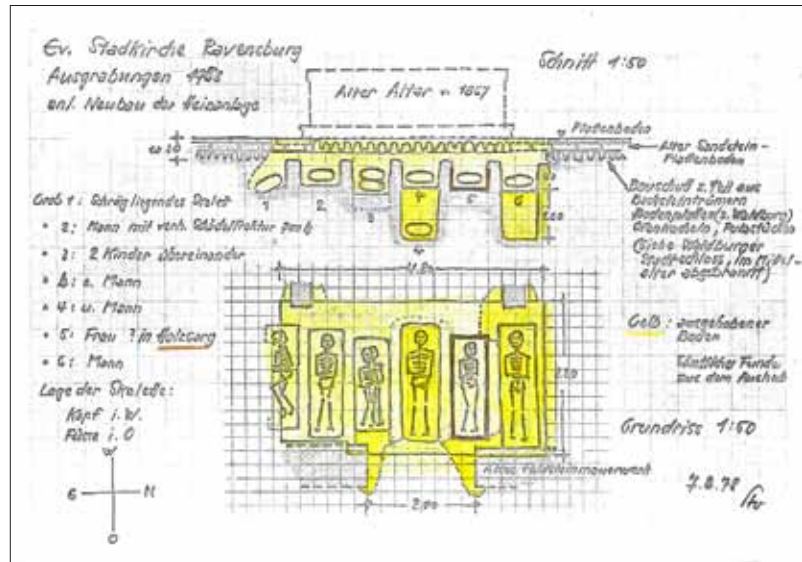 Ev. Stadkirche Ravensburg
Ausgrabungen
anl. Neubau der Heizanlage
Schnitt 1:50
Alter Altar v. 1867
Plattenboden
Alter Sandstein-
Plattenboden
Bauschutt z. Teil aus
Bodenplatten (s. Waldburg)
(Siehe Waldburger
Stadtschloss, im Mittel-
alter abgebrannt)
1
2
3
4
5
6
4
Grab 1: Schrägliegendes Skelett
" 2: Mann mit verh. Schädelfraktur
" 3: 2 Kinder übereinander
" 4: o. Mann
" 4: u. Mann
" 5: Frau ? in Holzsarg
" 6: Mann
Lage der Skelette:
Kopf i. W.
Füsse i. O
W
S
N
O
Gelb: ausgehobener
Boden
Sämtliche Funde
aus dem Aushub
Grundriss 1:50
2,00
7.8.78